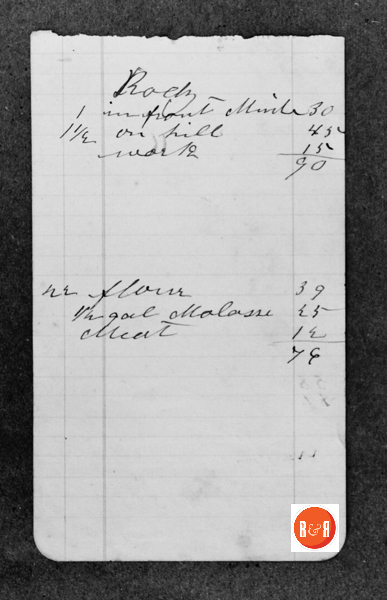 Rock
1 in front Mint 30
1 1/2 on hill 45
work 15
90
12 flour 39
1/2 gal Molasse 25
Meat 12
76
R&R